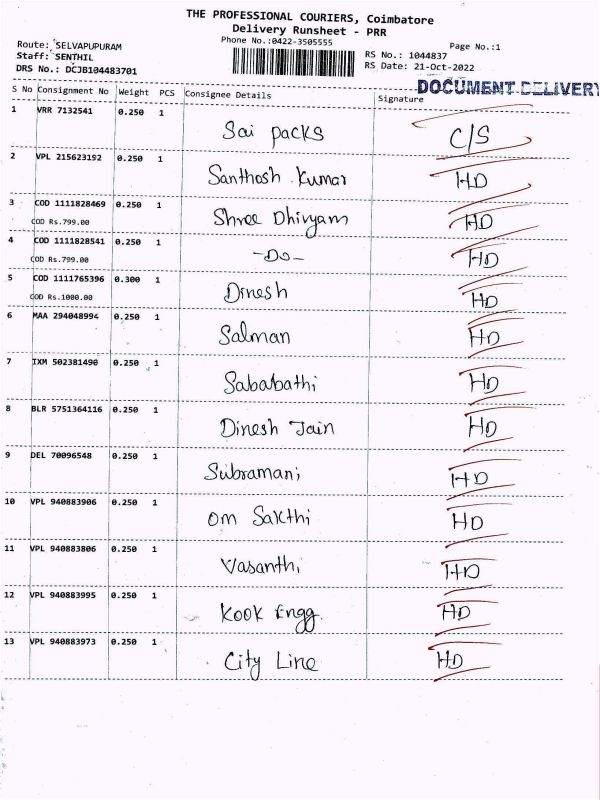 THE PROFESSIONAL COURIERS, Coimbatore
Delivery Runsheet - PRR
Phone No.:0422-3505555
Page No.:1
Route: SELVAPUPURAM
Staff: SENTHIL
DRS No.: DCJB104483701
RS No.: 1044837
RS Date: 21-Oct-2022
DOCUMENT DELIVERY
S No Consignment No Weight PCS Consignee Details Signature
1 VRR 7132541 0.250 1 Sai packs C/S
2 VPL 215623192 0.250 1 Santhosh Kumar HD
3 COD 1111828469 0.250 1 Shree Dhivyam HD
COD Rs.799.00
4 COD 1111828541 0.250 1 -Do- HD
COD Rs.799.00
5 COD 1111765396 0.300 1 Dinesh HD
COD Rs.1000.00
6 MAA 294048994 0.250 1 Salman HD
7 IXM 502381490 0.250 1 Sababathi HD
8 BLR 5751364116 0.250 1 Dinesh Jain HD
9 DEL 70096548 0.250 1 Subramani HD
10 VPL 940883906 0.250 1 Om Sakthi HD
11 VPL 940883806 0.250 1 Vasanthi HD
12 VPL 940883995 0.250 1 Kook Engg. HD
13 VPL 940883973 0.250 1 City Line HD